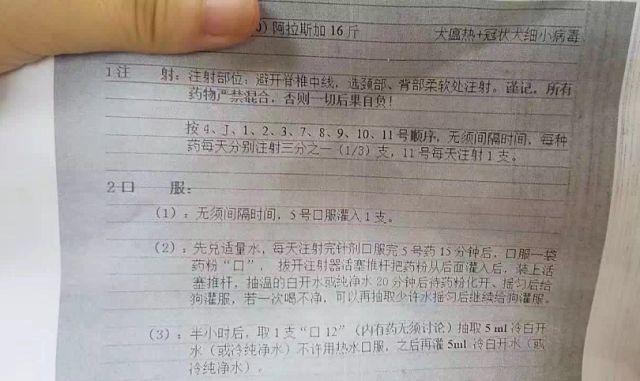 )阿拉斯加 16 斤 犬瘟热+冠状犬细小病毒
1 注 射：注射部位：避开脊椎中线，选颈部、背部柔软处注射。谨记，所有
药物严禁混合，否则一切后果自负！
按 4、J、1、2、3、7、8、9、10、11 号顺序，无须间隔时间，每种
药每天分别注射三分之一（1/3）支，11 号每天注射 1 支。
2 口 服：
（1）：无须间隔时间，5 号口服灌入 1 支。
（2）：先兑适量水，每天注射完针剂口服完 5 号药 15 分钟后，口服一袋
药粉“口”， 拔开注射器活塞推杆把药粉从后面灌入后，装上活
塞推杆，抽温的白开水或纯净水 20 分钟后待药粉化开、摇匀后给
狗灌服，若一次喝不净，可以再抽取少许水摇匀后继续给狗灌服。
（3）：半小时后，取 1 支“口 12”（内有药无须讨论）抽取 5 ml 冷白开
水（或冷纯净水）不许用热水口服，之后再灌 5ml 冷白开水（或
冷纯净水）。